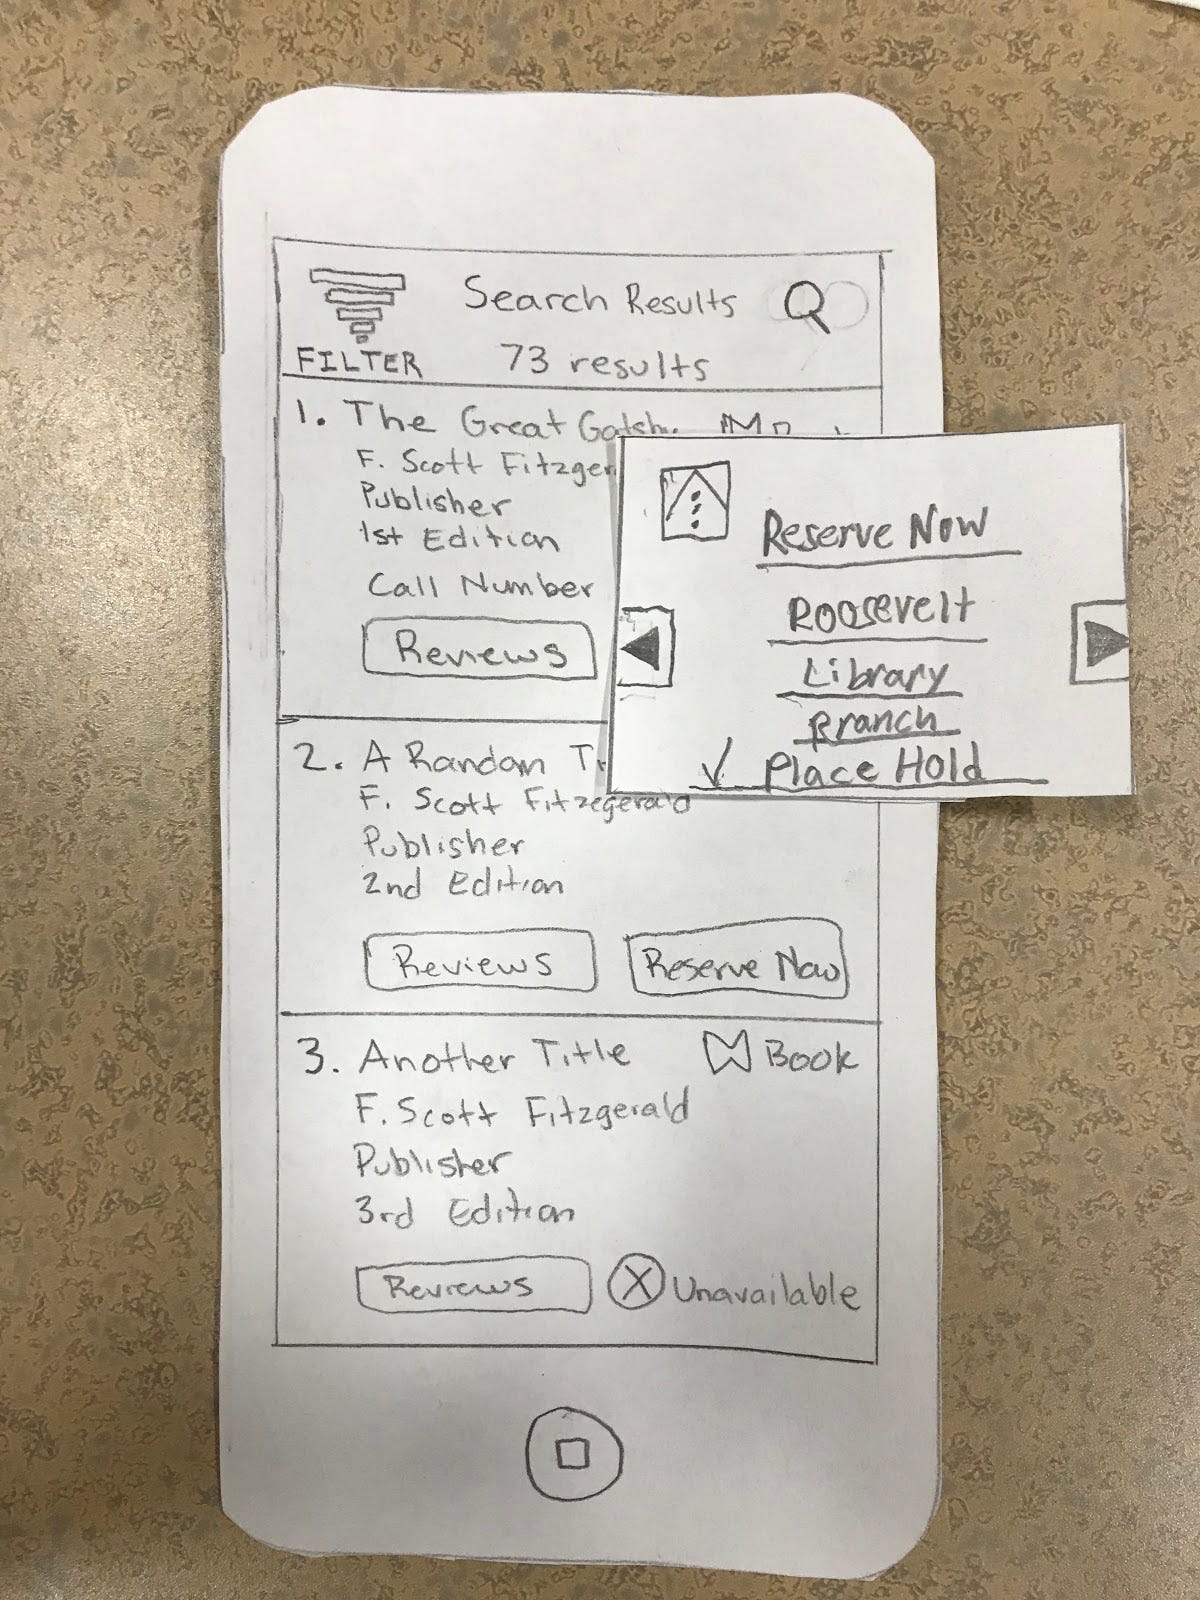 Search Results
FILTER
73 results
1. The Great Gatsby
F. Scott Fitzger
Publisher
1st Edition
Call Number
Reviews
Reserve Now
Roosevelt
Library
Branch
Place Hold
2. A Random
F. Scott Fitzegerald
Publisher
2nd Edition
Reviews
Reserve Now
3. Another Title
Book
F. Scott Fitzgerald
Publisher
3rd Edition
Reviews
X Unavailable